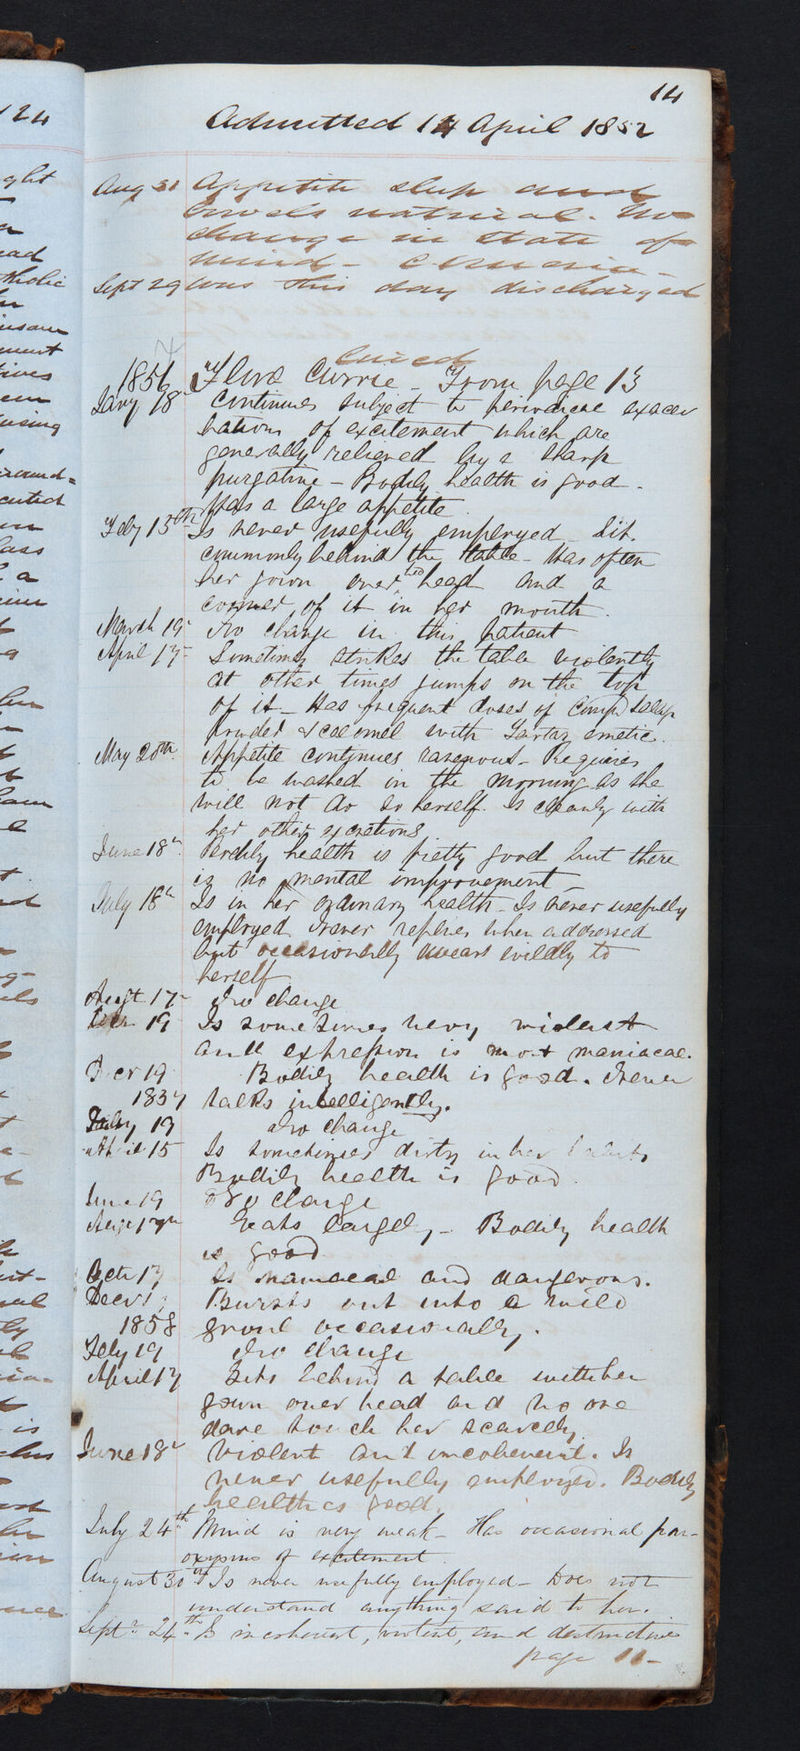 14
Admitted 14 April 1852
Aug 31 Appetite sleep and
bowels natural. No
change in state of
mind -
Sept 29 Was this day discharged
cured
1856 Flora Currie - From page 13
Jany 18th Continues subject to periodical exacer
bations of excitement which are
generally relieved by a sharp
purgative - Bodily health is good -
Has a large appetite
Feby 13th Is never usefully employed - Sits
commonly behind the table - Has often
her gown over her head and a
corner of it in her mouth.
March 19 No change in this patient
April 17 Sometimes strikes the table violently
at other times jumps on the top
of it - Has frequent doses of Comp Jalap
Powder & calomel with Tartar emetic.
May 20th Appetite continues ravenous - Requires
to be washed in the morning as she
will not do so herself. Is cleanly with
her other excretions
June 18th Bodily health is pretty good but there
is no mental improvement -
July 18th Is in her ordinary health - Is never usefully
employed Never replies when addressed
but occasionally swears wildly to
herself
Augt 17 No change
19 Is sometimes very violent
and expression is most maniacal.
Decr 19 Bodily health is good. Never
1857 talks intelligently.
Feby 19 No change
April 15 Is sometimes dirty in her habits
Bodily health is good.
June 19 No change
Augt 17th Eats largely - Bodily health
is good
Octr 17 Is maniacal and dangerous.
Decr Bursts out into a wild
1858 growl occasionally.
Feby 19 No change
April 17 Sits behind a table with her
gown over head and no one
dare touch her scarcely
June 18th Violent and incoherent. Is
never usefully employed. Bodily
health is good.
July 24th Mind is very weak - Has occasional par-
oxysms of excitement.
August 30th Is never usefully employed - Does not
understand anything said to her.
Septr 24th Is incoherent, violent, and destructive
page 11-